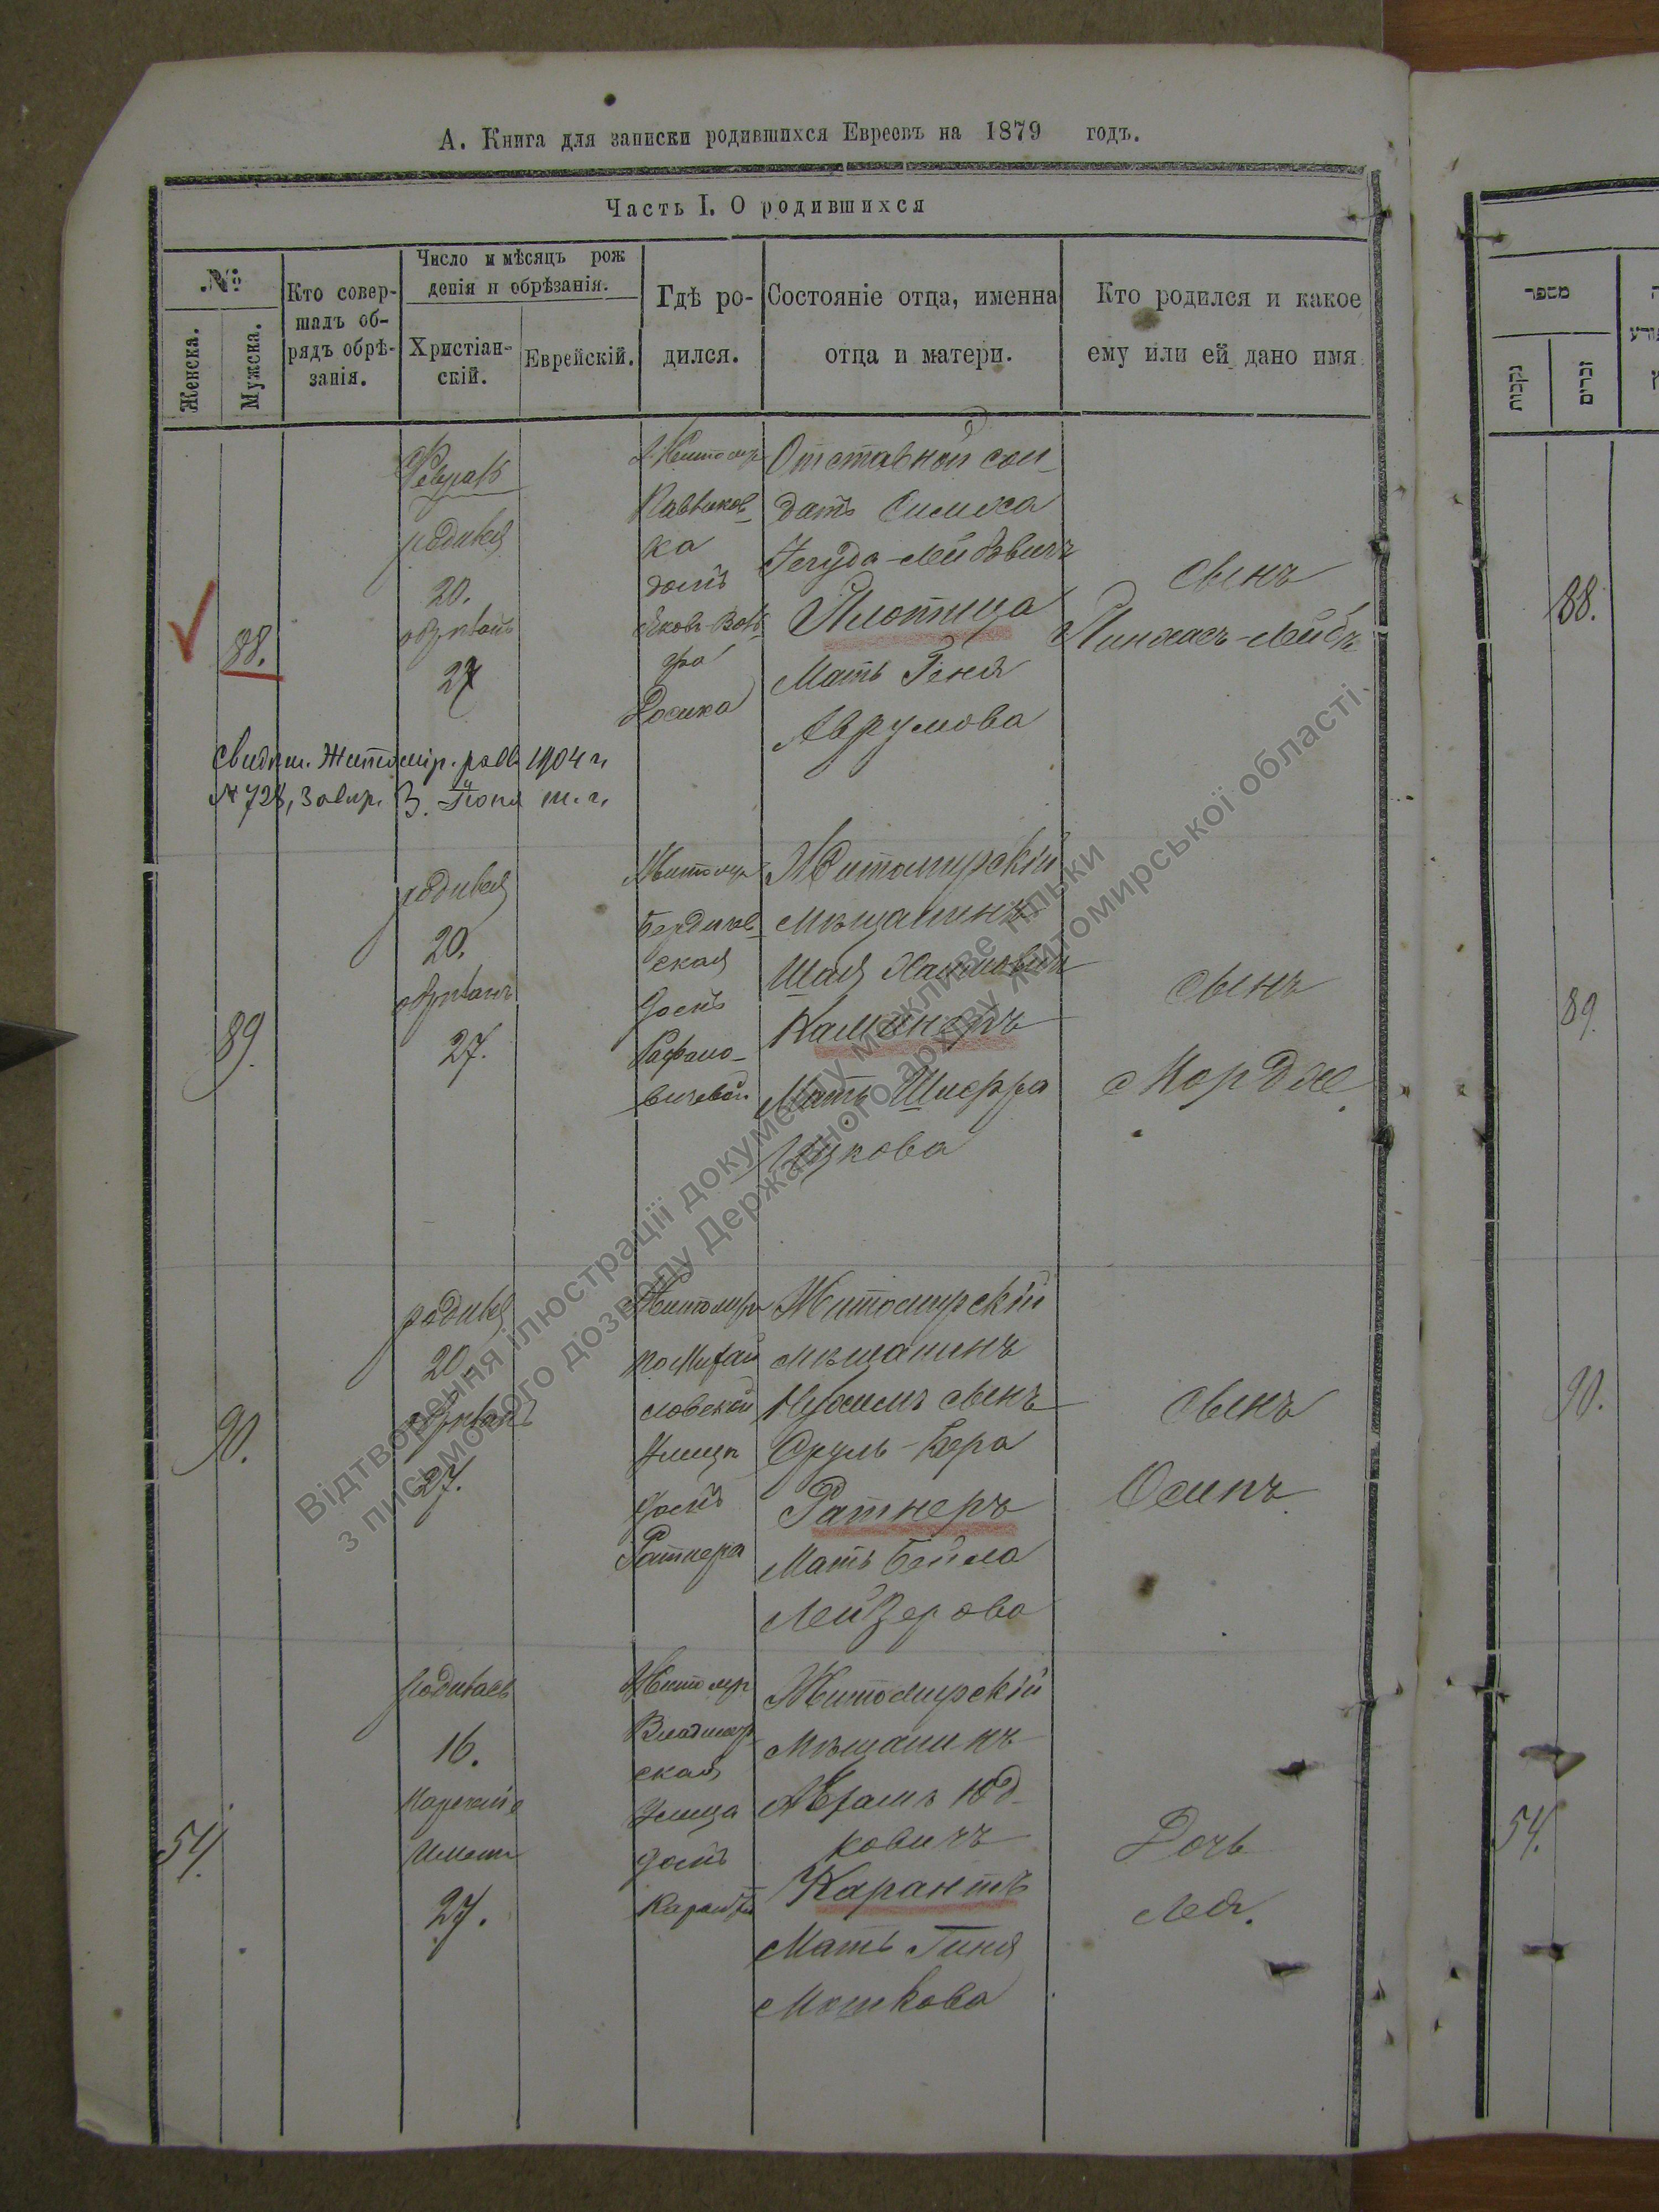 А. Книга для записки родившихся Евреевъ на 1879 годъ.
Часть I. О родившихся
№
Женска.
Мужска.
Кто совер-
шалъ об-
рядъ обрѣ-
занія.
Число и мѣсяцъ рож
денія и обрѣзанія.
Христіан-
скій.
Еврейскій.
Гдѣ ро-
дился.
Состояніе отца, именна
отца и матери.
Кто родился и какое
ему или ей дано имя
מספר
נקבות
זכרים
88.
Февраль
родився
20.
обрѣзанъ
27
Житомиръ
ка
домъ
Отставной сол-
датъ Симха
Іегуда-Лейбовичъ
Плотица
Мать Геня
Аврумова
сынъ
Пинхасъ-Лейбъ
88.
Свидѣт. Житомір. равв. 1904 г.
№ 728, Завѣр. 3. Іюня т. г.
89.
родився
20.
обрѣзанъ
27.
Житомиръ
Бердичев-
ская
домъ
Рафало-
вичевой
Житомирскій
мѣщанинъ
Шая Хаимовичъ
Каминеръ
Мать Шифра
Ицкова
сынъ
Мордхе
89.
90.
родився
20.
обрѣзанъ
27.
Житомиръ
по Михай
ловской
улицѣ
домъ
Ратнера
Житомирскій
мѣщанинъ
Нухимъ сынъ
Сруль-Бера
Ратнеръ
Мать Бейла
Лейзерова
сынъ
Осипъ
90.
54.
родилась
16.
Нареканіе
имени
27.
Житомир
Владимир
ская
улица
домъ
Житомирскій
мѣщанинъ
Абрамъ Юд-
ковичъ
Карантъ
Мать Гиня
Мошкова
Дочь
Лея.
54.
Відтворення ілюстрації документу можливе тільки
з письмового дозволу Державного архіву Житомирської області